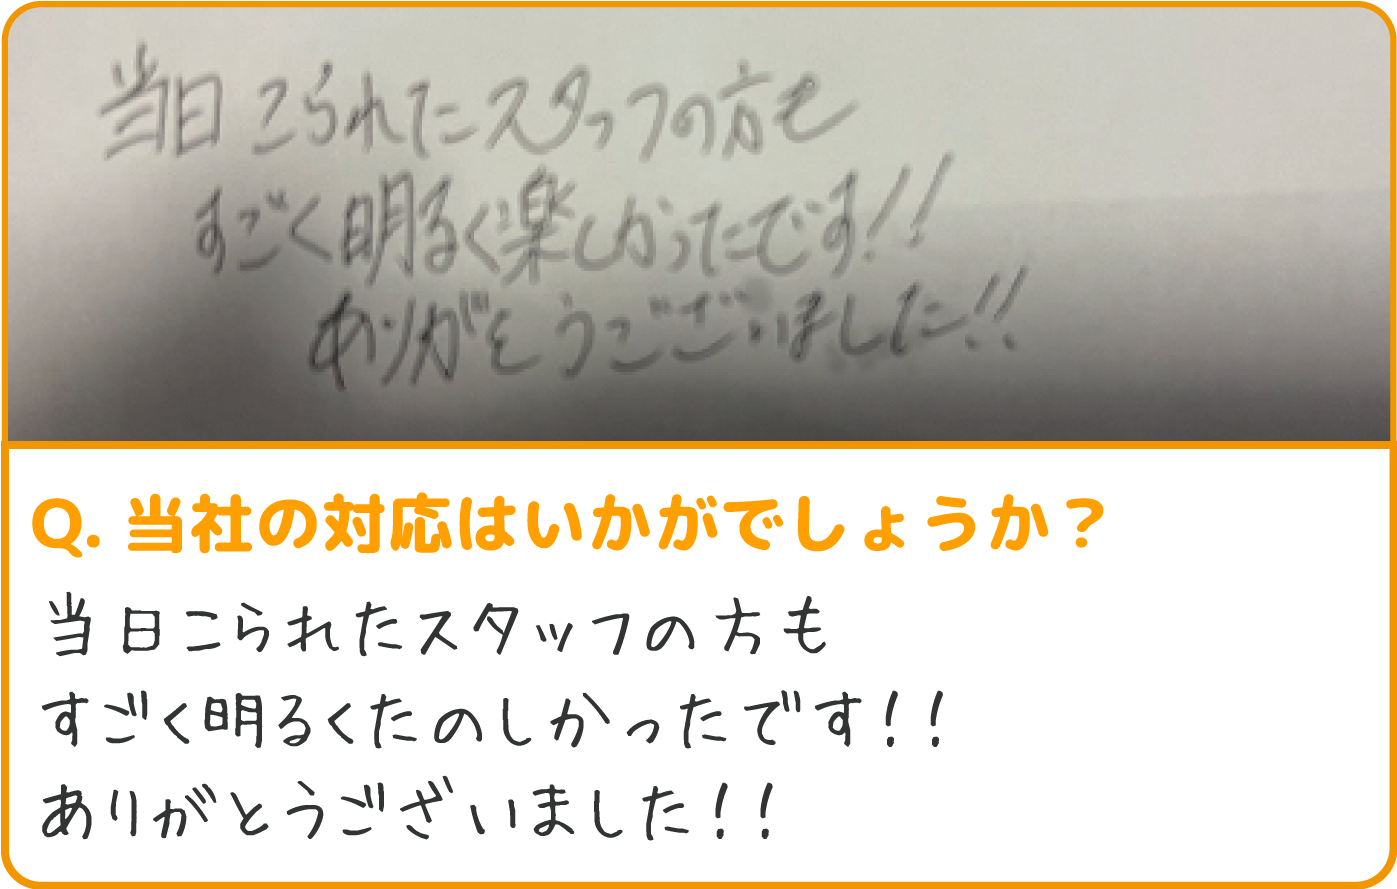 当日こられたスタッフの方も
すごく明るく楽しかったです!!
ありがとうございました!!
Q. 当社の対応はいかがでしょうか？
当日こられたスタッフの方も
すごく明るくたのしかったです!!
ありがとうございました!!